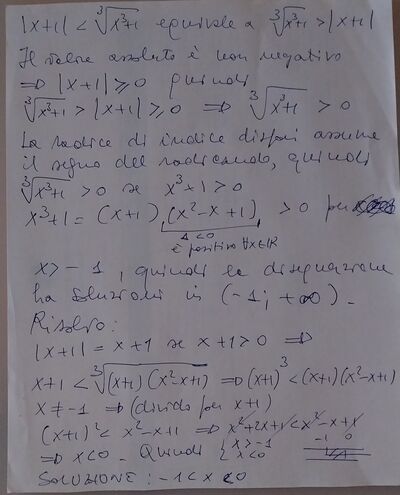 |x+1| < ∛(x³+1) equivale a ∛(x³+1) > |x+1|
Il valore assoluto è non negativo
⇒ |x+1| ⩾ 0 quindi
∛(x³+1) > |x+1| ⩾ 0 ⇒ ∛(x³+1) > 0
La radice di indice dispari assume
il segno del radicando, quindi
∛(x³+1) > 0 se x³+1 > 0
x³+1 = (x+1)(x²-x+1) > 0 per
Δ < 0
è positivo ∀x∈ℝ
x > -1, quindi la disequazione
ha soluzioni in (-1; +∞).
Risolvo:
|x+1| = x+1 se x+1 > 0 ⇒
x+1 < ∛((x+1)(x²-x+1)) ⇒ (x+1)³ < (x+1)(x²-x+1)
x ≠ -1 ⇒ (divido per x+1)
(x+1)² < x²-x+1 ⇒ x²+2x+1 < x²-x+1
⇒ x < 0. Quindi { x > -1 x < 0 -1 0
SOLUZIONE: -1 < x < 0